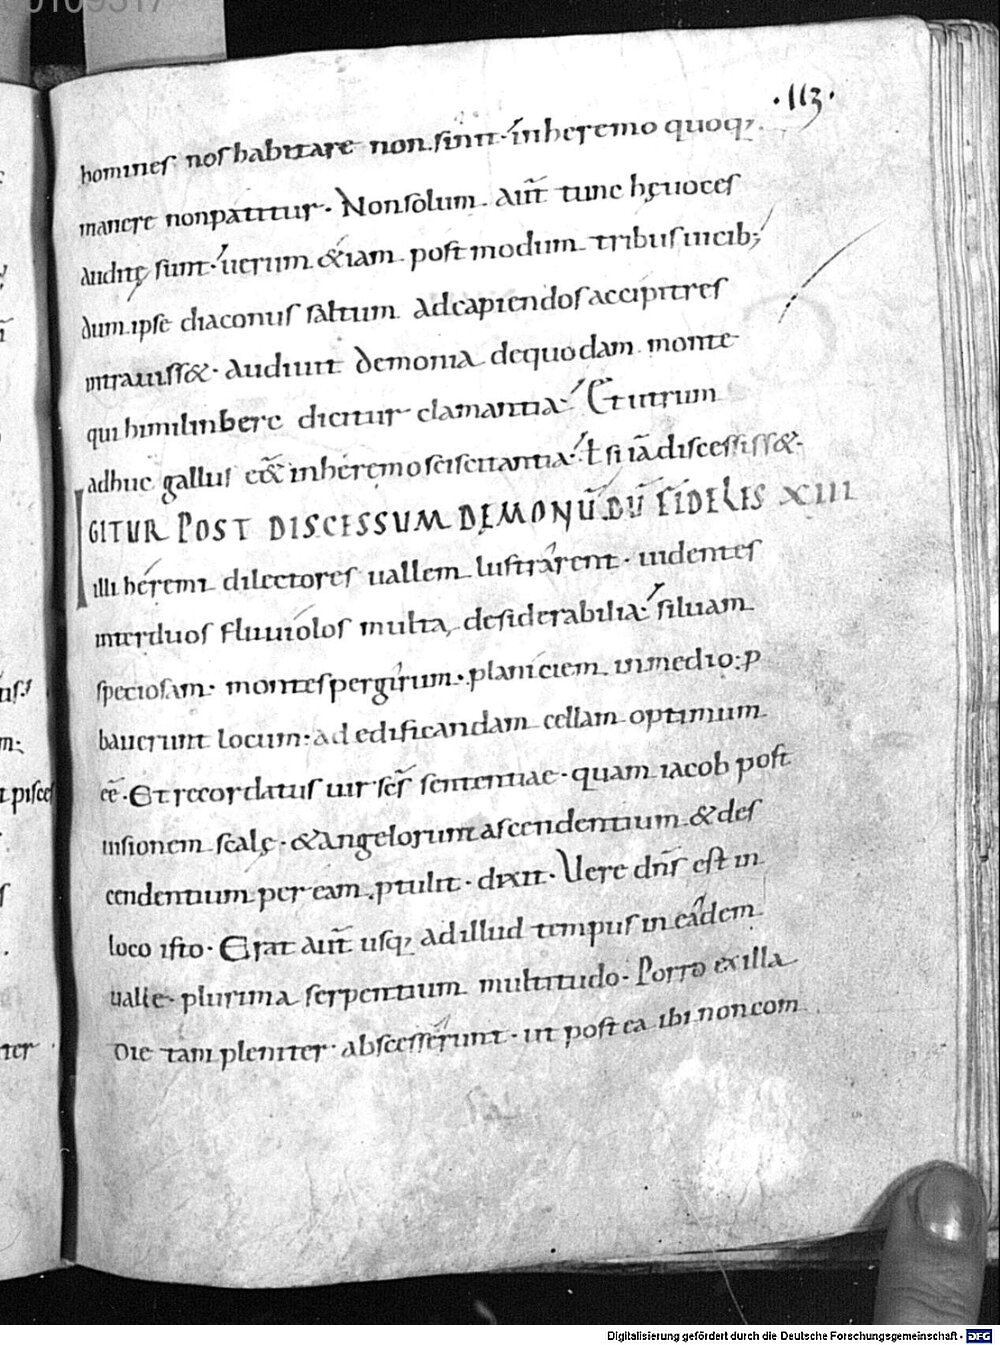 ·113·
homines nos habitare non sinit · in heremo quoq;
manere non patitur · Non solum aut̄ tunc hę uoces
auditę sunt · uerum &iam post modum tribus uicib;
dum ipse diaconus saltum ad capiendos accipitres
intrauiss& · audiuit demonia de quodam monte
qui himilinberc dicitur clamantia · Et utrum
adhuc gallus ē& in heremo sciscitantia · ł si iā discessiss& ·
IGITUR POST DISCESSUM DEMONŪ DŪ FIDELES XIII
illi heremi dilectores uallem lustrarent · uidentes
inter duos fluuiolos multa desiderabilia · siluam
speciosam · montes per girum · planiciem in medio : p
bauerunt locum : ad edificandam cellam optimum
eē · Et recordatus uir sc̄s sententiae · quam iacob post
uisionem scalę · & angelorum ascendentium & des
cendentium per eam ptulit · dixit · Uere dn̄s est in
loco isto · Erat aut̄ usq; ad illud tempus in eadem
ualle · plurima serpentium multitudo · Porro ex illa
die tam pleniter · abscesserunt · ut post ea ibi non com
pisces
ter
Digitalisierung gefördert durch die Deutsche Forschungsgemeinschaft - DFG